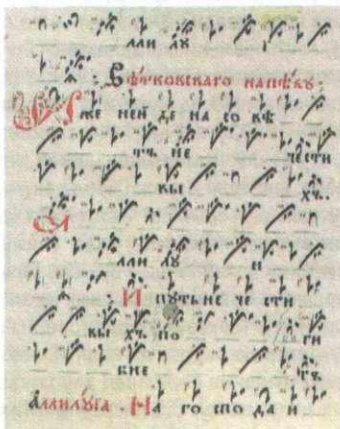 лли лу
ꙗ. Вѣтковскаго напѣвꙋ
же не и де на со вѣ
тъ не чести
вы хъ.
а
лли лу и
ꙗ. И путь не че сти
вы хъ по ги
бне тъ
аллилꙋїа. На го спо да и